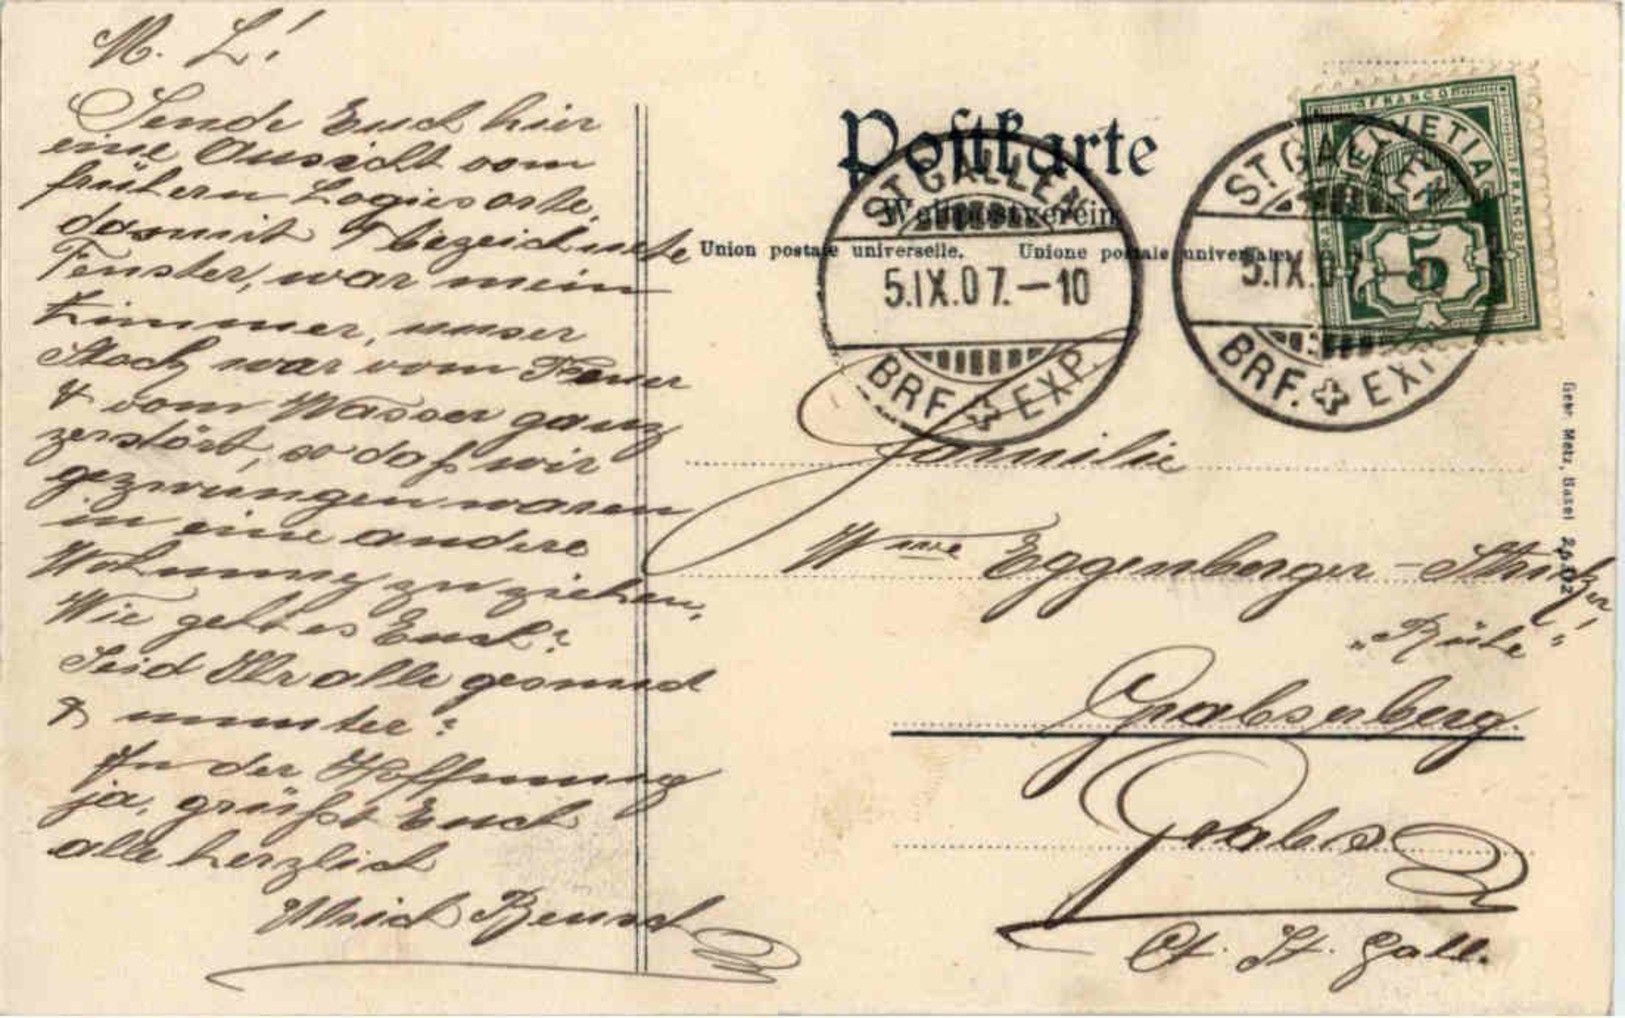 M. L!
Sende Euch hier
eine Ansicht vom
frühern Logiesorte,
damit bezeichnete
Fenster, war mein
Zimmer, unser
Stock war vom Feuer
& vom Wasser ganz
zerstört, so daß wir
gezwungen waren
in eine andere
Wohnung zu ziehen.
Wie geht es Euch?
Seid Ihr alle gesund
& munter?
In der Hoffnung
ja, grüßt Euch
alle herzlich
Ulrich Beusch
Postkarte
Weltpostverein
Union postale universelle. Unione postale universale
ST. GALLEN
5.IX.07.-10
BRF. EXP.
ST. GALLEN
5.IX.07.-
BRF. EXP.
FRANCO
HELVETIA
FRANCO
5
Familie
Wwe Eggenberger-
Grabserberg.
Grabs
Ct. St. Gall.
Gebr. Metz, Basel